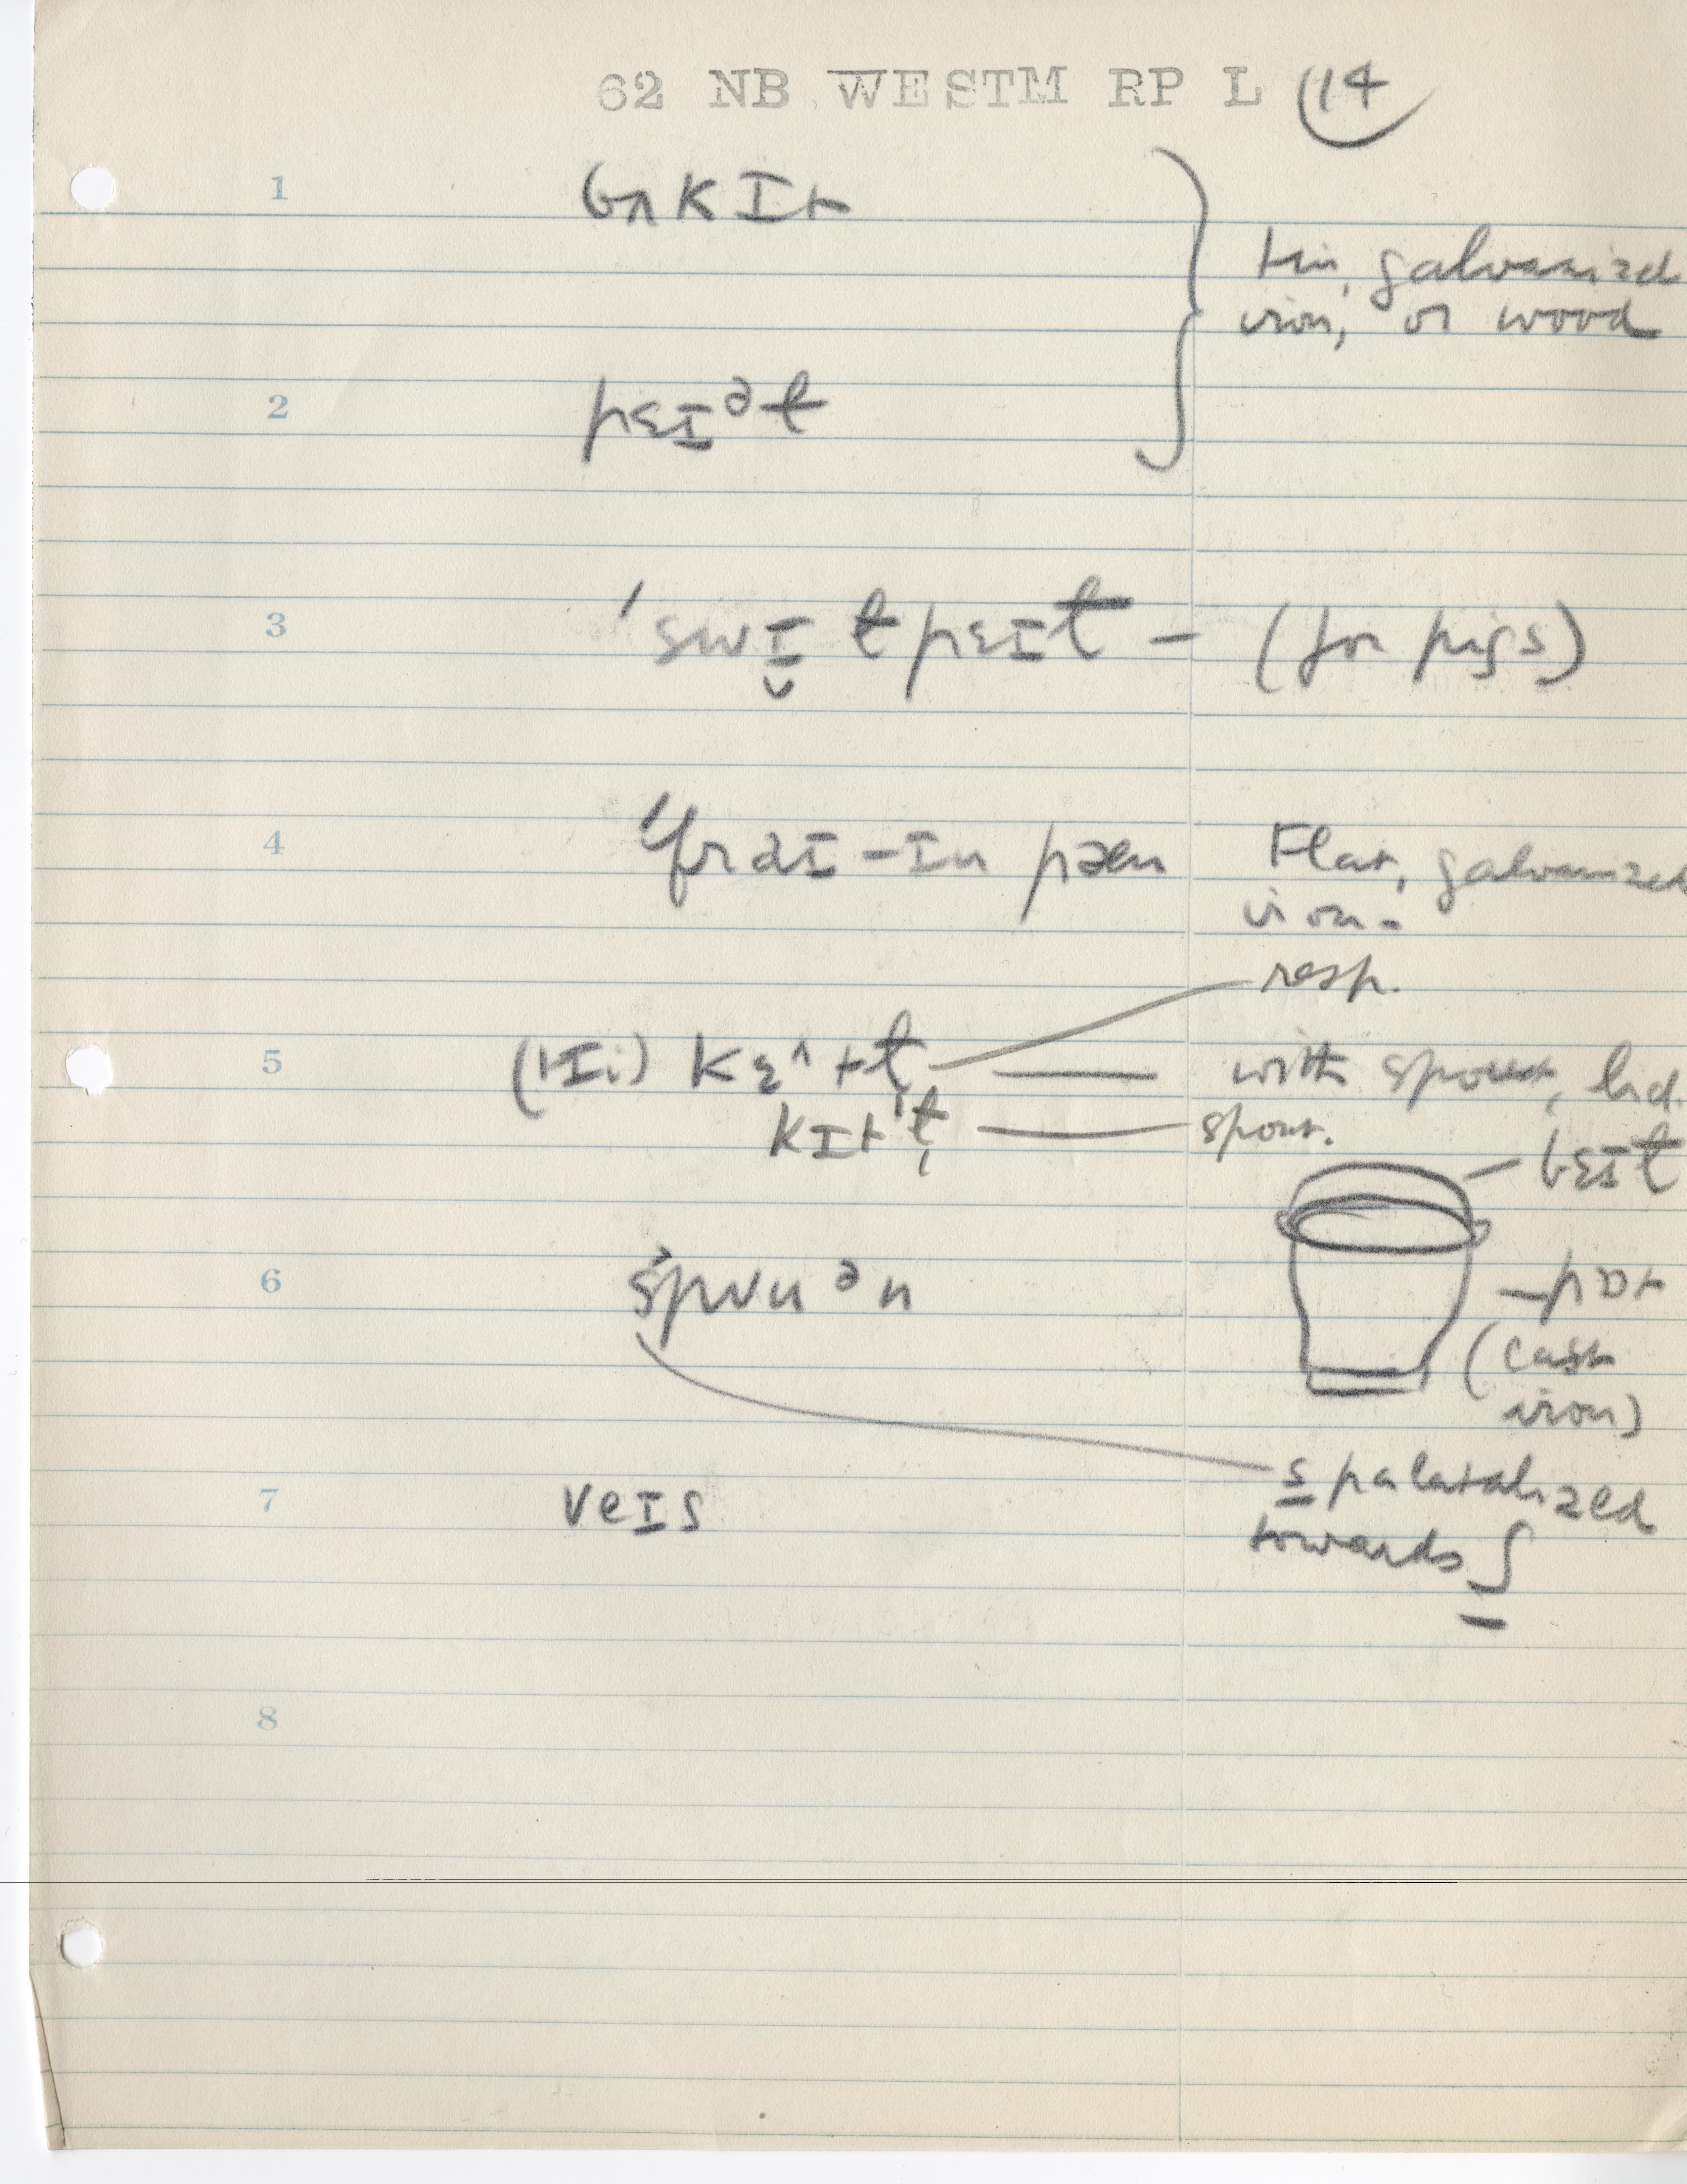 62 NB WESTM RP L 14
1 bʌkɪt
tin, galvanized
iron, or wood
2 pɛɪᵊɫ
3 ˈswɪ̬ɫpɛɪɫ – (for pigs)
4 ˈfraɪ-ɪn pæn Flat, galvanized
iron.
resp.
5 (ti) kɛ^tɫ̩ — with spout, lid.
kɪtɫ̩ — spout.
bɛɪɫ
6 špuᵊn
pɒt
(cast
iron)
s palatalized
towards ʃ
7 veɪs
8